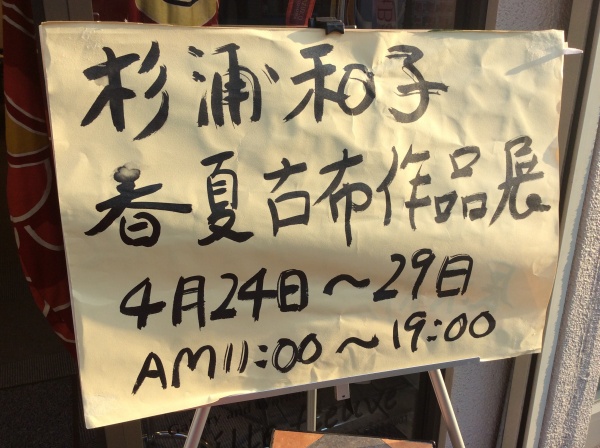 杉浦和子
春夏古布作品展
4月24日〜29日
AM11:00〜19:00